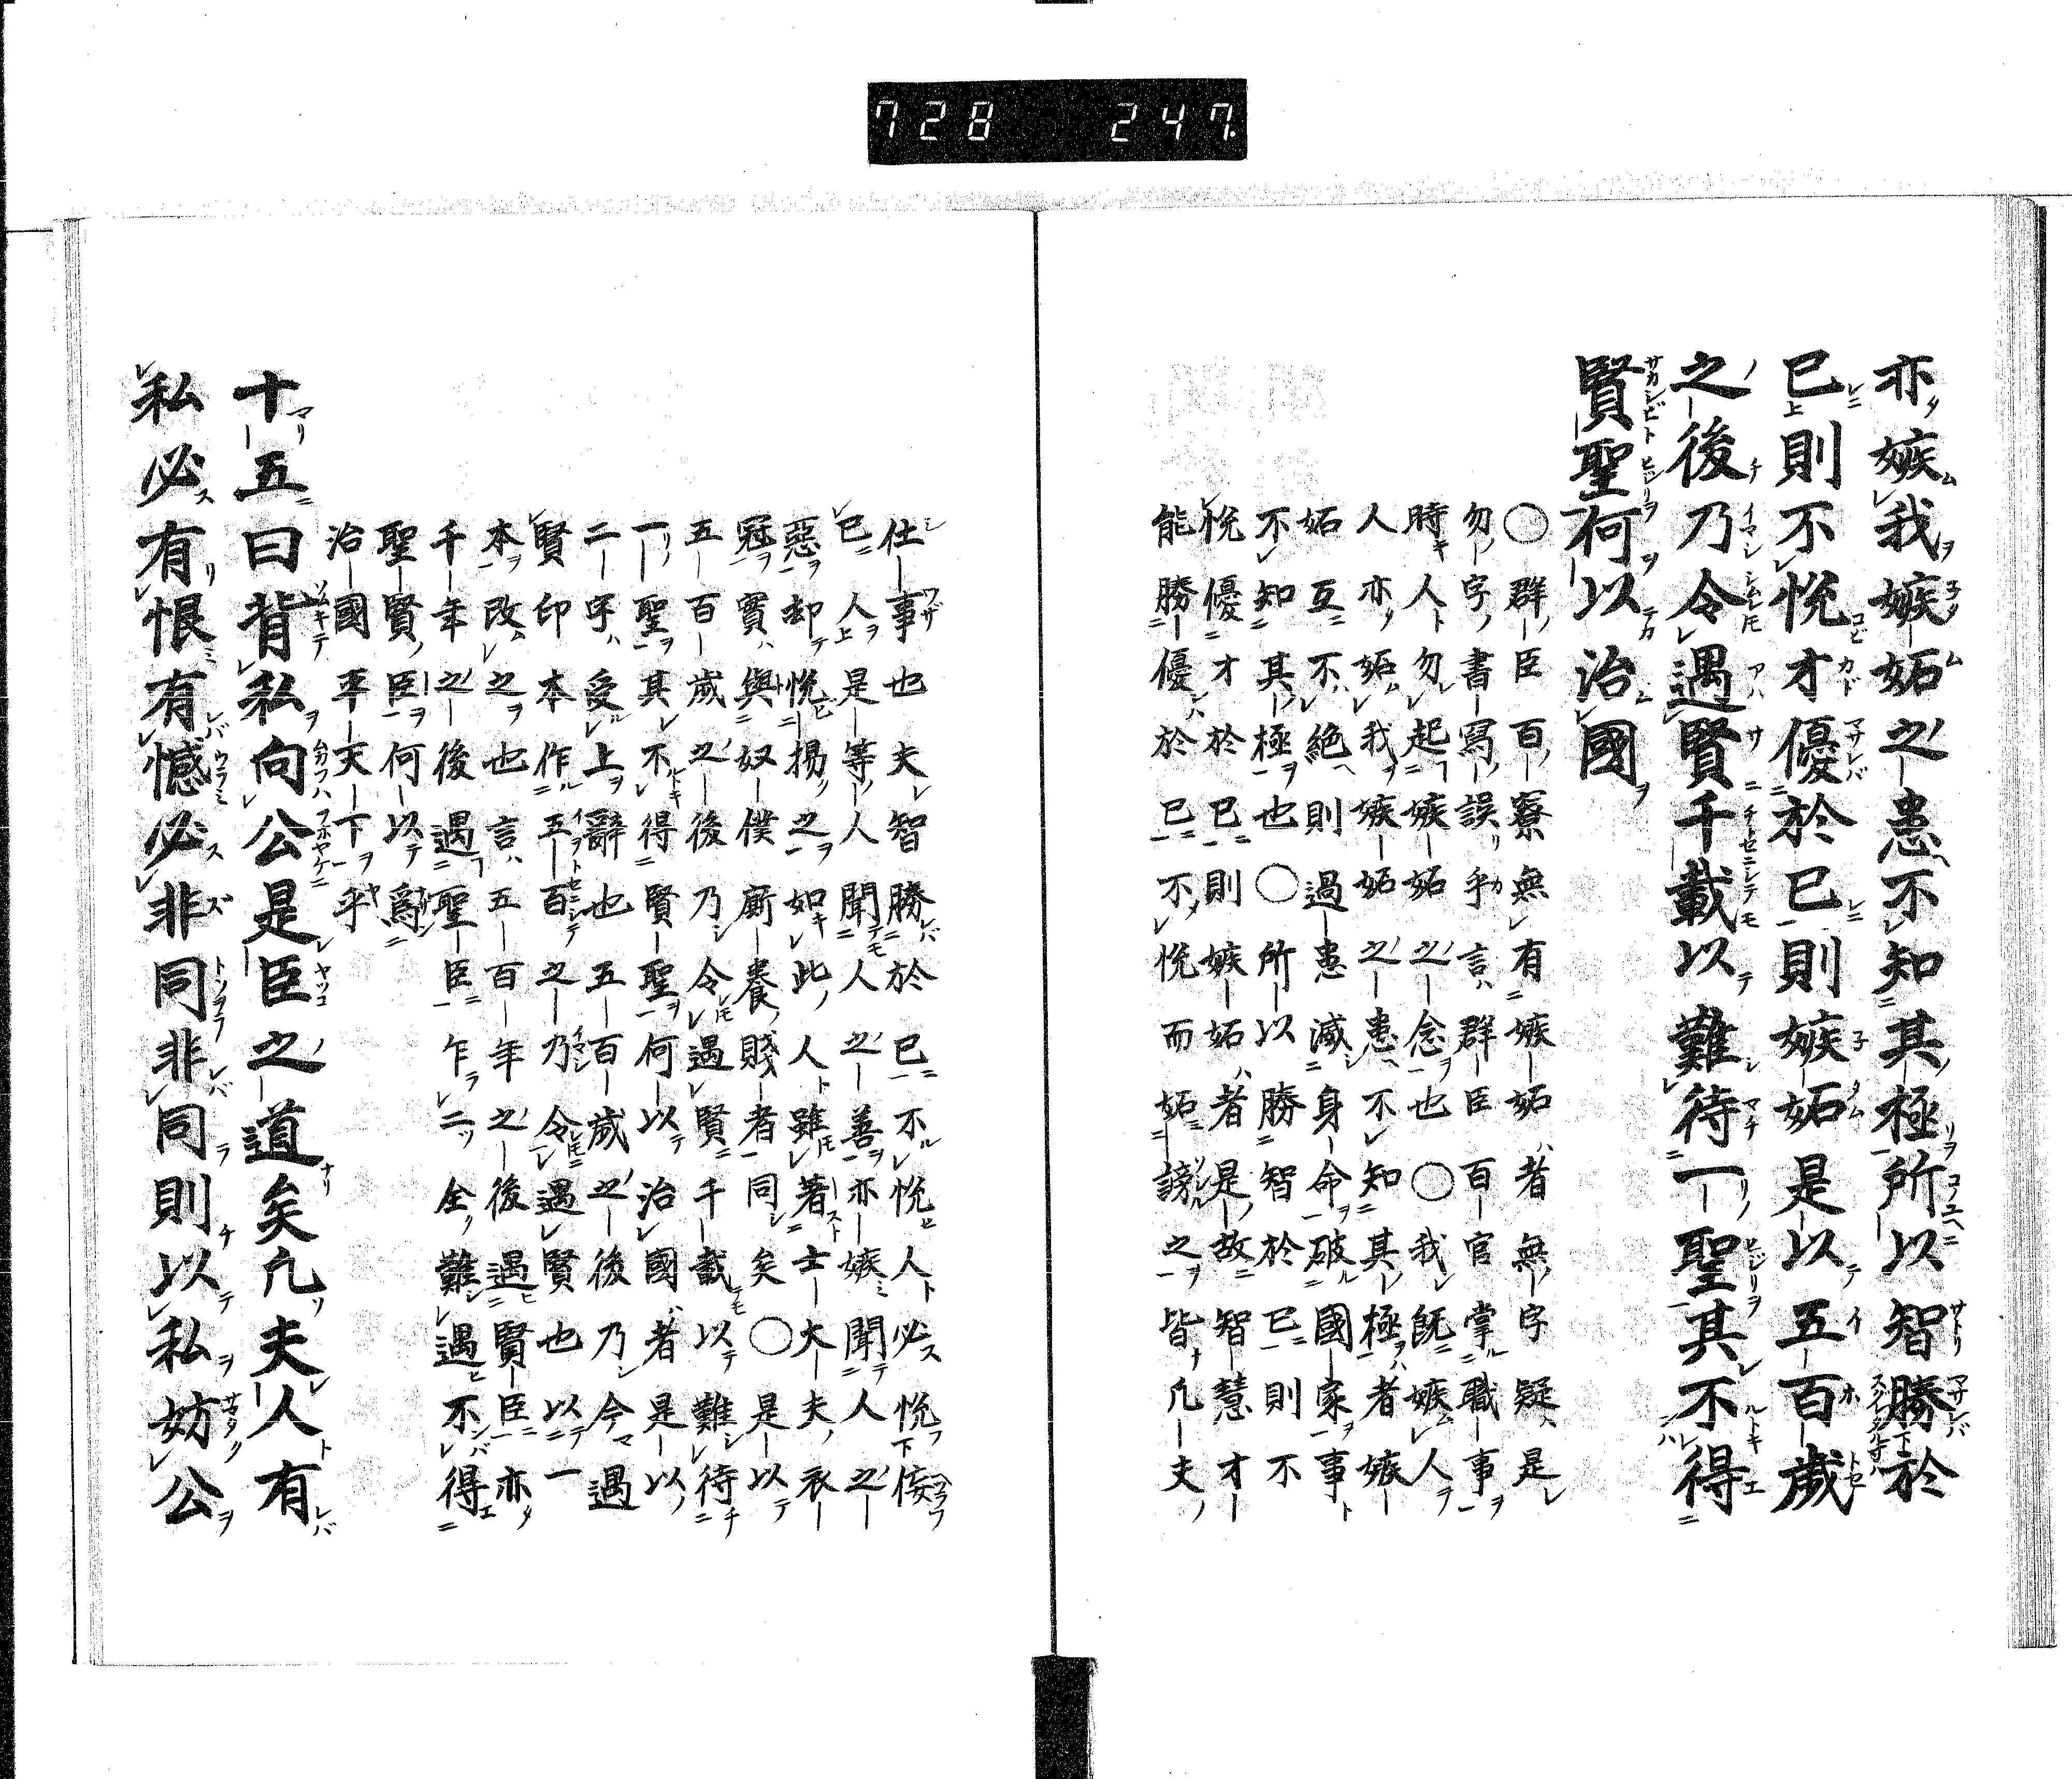 728 247.
亦嫉我嫉妬之患不知其極所以智勝於
已則不悦才優於已則嫉妬是以五百歳
之後乃令遇賢千載以難待一聖其不得
賢聖何以治國
〇群臣百寮無有嫉妬者無字疑是
勿字書寫誤乎言群臣百官掌職事
時人勿起嫉妬之念也〇我既嫉人
人亦妬我嫉妬之患不知其極者嫉
妬互不絶則過患滅身命破國家事
不知其極也〇所以勝智於已則不
悦優才於已則嫉妬者是故智慧才
能勝優於已不悦而妬謗之皆凢夫
仕事也夫智勝於已不悦人必悦侫
已人是等人聞人之善亦嫉聞人之
惡却悦揚之如此人雖著士大夫衣
冠實與奴僕廝養賤者同矣〇是以
五百歳之後乃令遇賢千載以難待
一聖其不得賢聖何以治國者是以
二字受上辭也五百歳之後乃今遇
賢印本作五百之乃令遇賢也以一
本改之也言五百年之後遇賢臣亦
千年之後遇聖臣乍二全難遇不得
聖賢臣何以爲
治國平天下乎
十五曰背私向公是臣之道矣凢夫人有
私必有恨有憾必非同非同則以私妨公